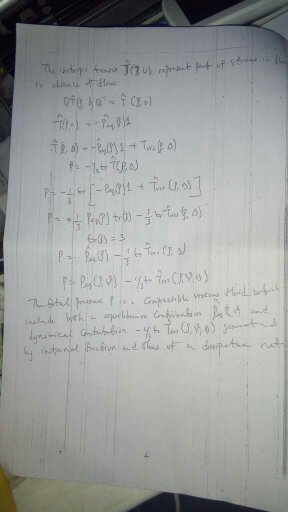 The isotropic tensor T̂(ρ,0) represent part of stress in
in absence of flow
Q T̂(ρ,0) Qᵀ = T̂(ρ,0)
T̂(ρ,0) = -P̂eq(ρ)1
T̂(ρ,D) = -P̂eq(ρ)1 + Tvis(ρ,D)
P = -1/3 tr T̂(ρ,D)
P = -1/3 tr [-Peq(ρ)1 + T̂vis(ρ,D)]
P = 1/3 Peq(ρ) tr(1) - 1/3 tr T̂vis(ρ,D)
tr(1) = 3
P = P̂eq(ρ) - 1/3 tr T̂vis(ρ,D)
P = Peq(ρ,θ) - 1/3 tr T̂vis(ρ,θ,D)
The total pressure P is a compressible viscous fluid which
include both a equilibrium contribution P̂eq(ρ,θ) and
dynamical contribution -1/3 tr Tvis(ρ,θ,D) generated
by internal friction and thus of a dissipative